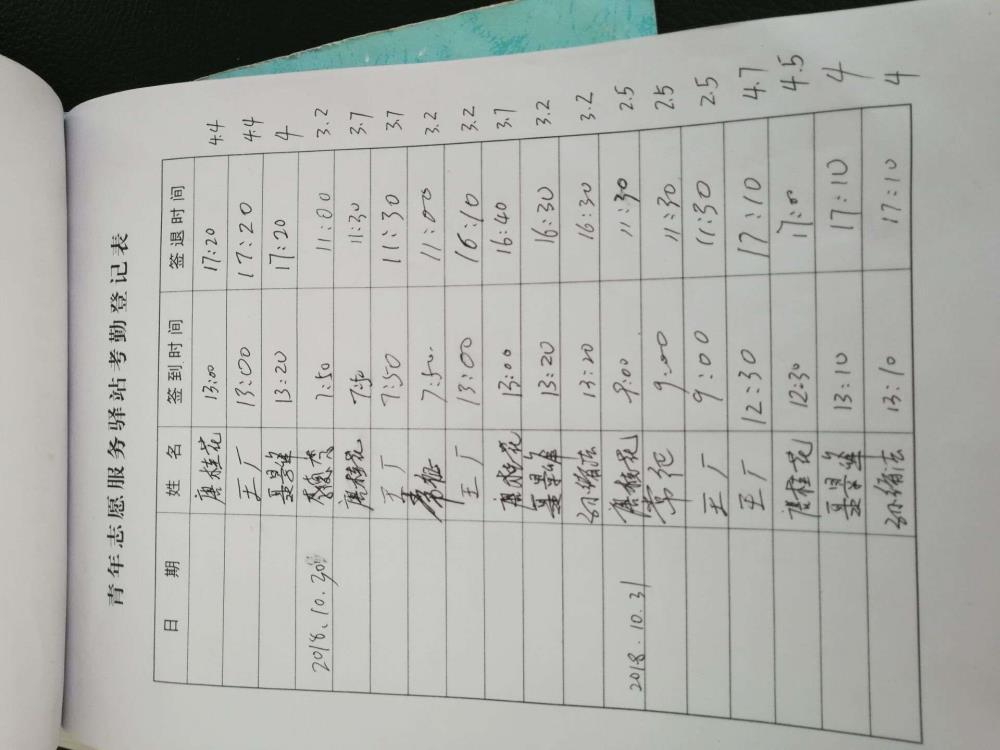 青年志愿服务驿站考勤登记表
日 期 姓 名 签到时间 签退时间
唐桂花 13:00 17:20 4.4
王广 13:00 17:20 4.4
13:20 17:20 4
2018.10.30 7:50 11:00 3.2
唐桂花 7:50 11:30 3.7
王广 7:50 11:30 3.7
7:50. 11:00 3.2
王广 13:00 16:10 3.2
唐桂花 13:00 16:40 3.7
13:20 16:30 3.2
13:20 16:30 3.2
2018.10.31 唐桂花 9:00 11:30 2.5
9:00 11:30 2.5
王广 9:00 11:30 2.5
王广 12:30 17:10 4.7
唐桂花 12:30 17:00 4.5
13:10 17:10 4
13:10 17:10 4